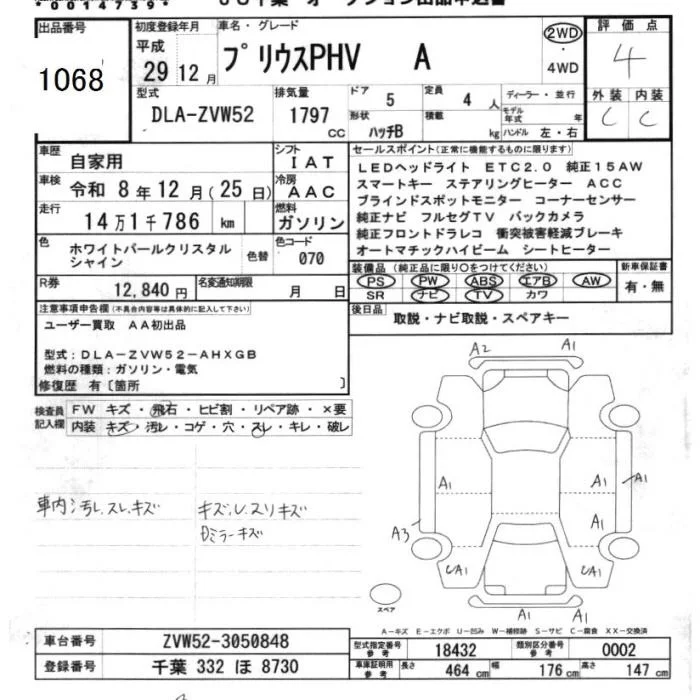 *00147394*
JU千葉 オークション出品申込書
出品番号
1068
初度登録年月
平成
29年12月
車名・グレード
プリウスPHV A
2WD
・
4WD
評価点
4
型式
DLA-ZVW52
排気量
1797 CC
ドア 5
定員 4人
形状 ハッチB
積載 kg
ディーラー・並行
モデル年式 年
ハンドル 左・右
外装 内装
C C
車歴 自家用
シフト IAT
車検 令和8年12月(25日)
冷房 AAC
走行 14万1千786 km
燃料 ガソリン
色 ホワイトパールクリスタルシャイン
色替
色コード 070
R券 12,840円
名変通知期限 月 日
セールスポイント(正常に機能するものに限ります)
LEDヘッドライト ETC2.0 純正15AW
スマートキー ステアリングヒーター ACC
ブラインドスポットモニター コーナーセンサー
純正ナビ フルセグTV バックカメラ
純正フロントドラレコ 衝突被害軽減ブレーキ
オートマチックハイビーム シートヒーター
装備品(純正品に限り○をつけてください)
PS PW ABS エアB AW
SR ナビ TV カワ
新車保証書
有・無
後日品
取説・ナビ取説・スペアキー
注意事項申告欄(不具合内容等は具体的に記入して下さい)
ユーザー買取 AA初出品
型式:DLA-ZVW52-AHXGB
燃料の種類:ガソリン・電気
修復歴 有〔箇所 〕
検査員記入欄
FW キズ・飛石・ヒビ割・リペア跡・×要
内装 キズ・汚レ・コゲ・穴・スレ・キレ・破レ
車内:汚レ、スレ、キズ
キズ、U、スリキズ
A2
A1
A1
A1
A1
A1
A3
UA1
UA1
スペア
A-キズ E-エクボ U-凹み W-補修跡 S-サビ C-腐食 XX-交換済
車台番号 ZVW52-3050848
登録番号 千葉 332 ほ 8730
型式指定番号 参考 18432
類別区分番号 参考 0002
車庫証明用 参考
長さ 464 cm
幅 176 cm
高さ 147 cm